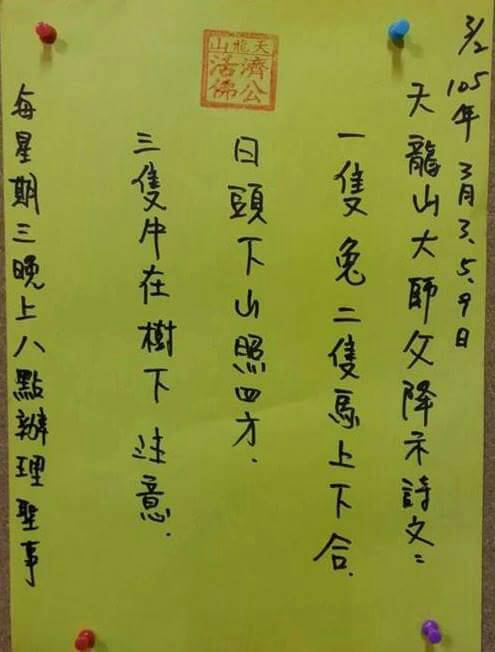 天龍山
濟公
活佛
3/2 105年 3月3.5.9日
天龍山大師父降示詩文:
一隻兔二隻馬上下合.
日頭下山照四方.
三隻牛在樹下 注意.
每星期三晚上八點辦理聖事